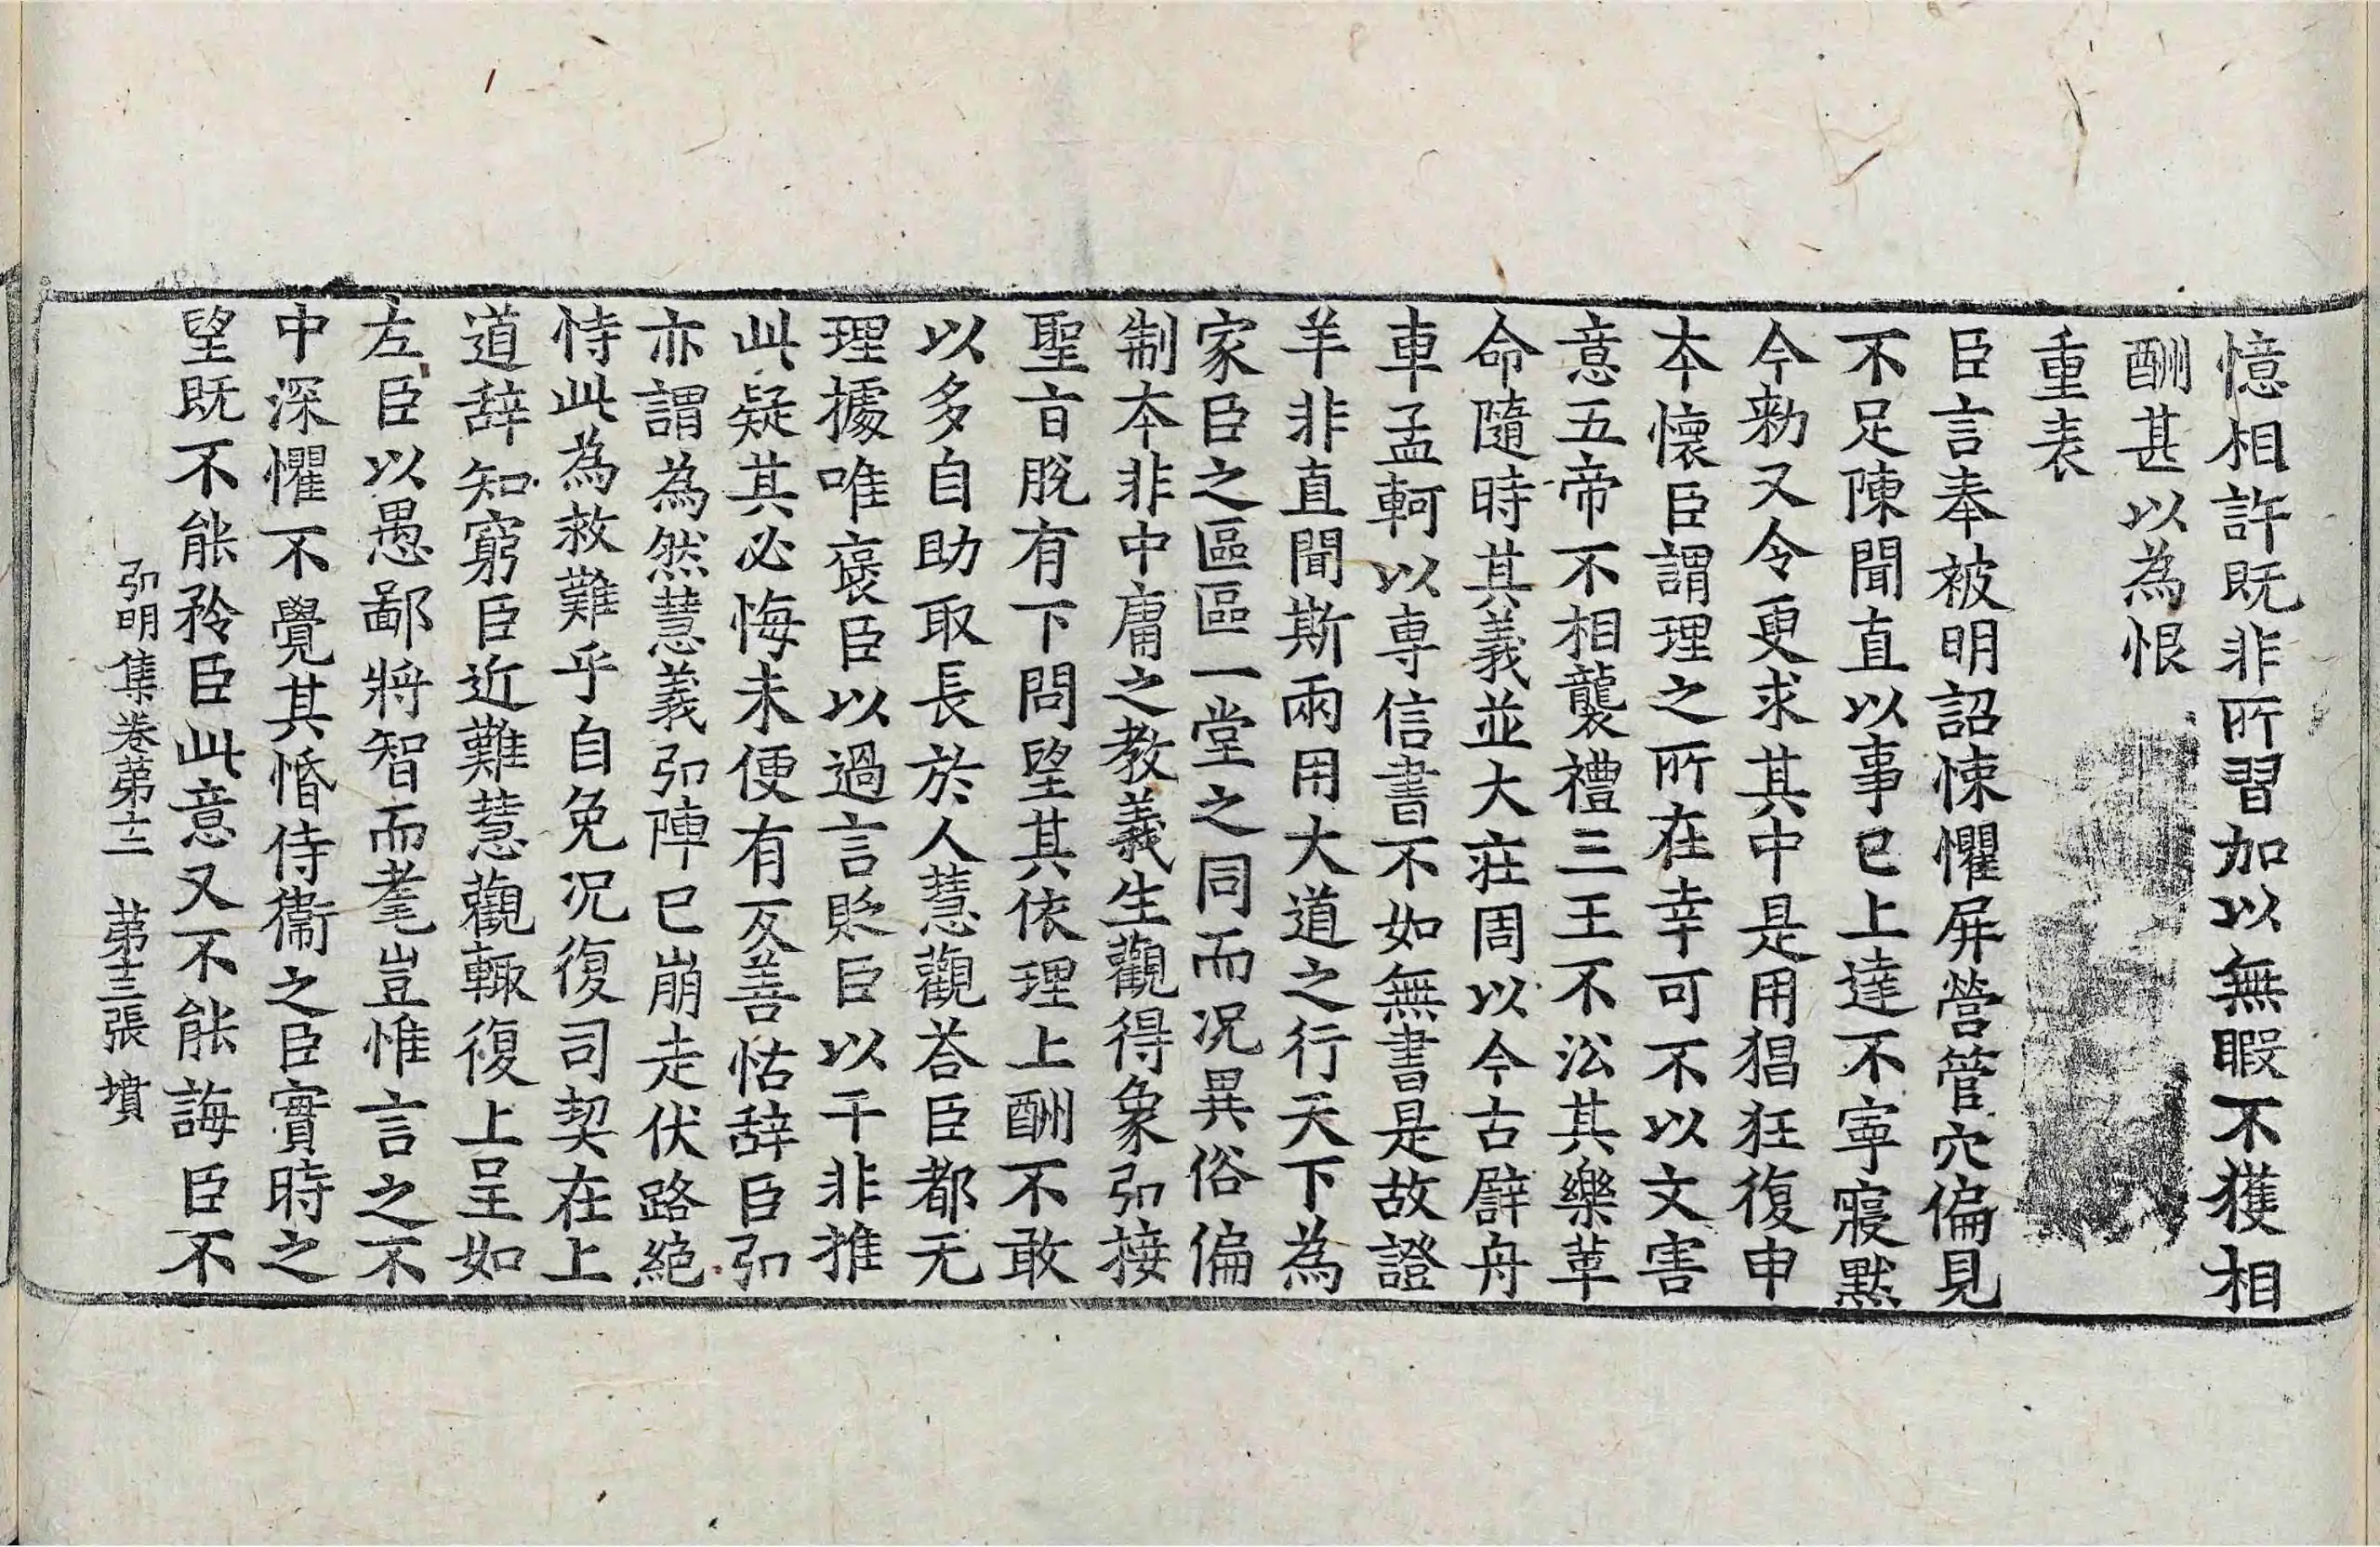 憶相許既非所習加以無暇不獲相
酬甚以為恨
重表
臣言奉被明詔悚懼屏營管穴偏見
不足陳聞直以事已上達不寧寢默
今勑又令更求其中是用猖狂復申
本懷臣謂理之所在幸可不以文害
意五帝不相襲禮三王不㳂其樂革
命隨時其義並大莊周以今古譬舟
車孟軻以専信書不如無書是故證
羊非直聞斯兩用大道之行天下為
家臣之區區一堂之同而况異俗偏
制本非中庸之教義生觀得象弘接
聖㫖脫有下問望其依理上酬不敢
以多自助取長於人慧觀荅臣都无
理據唯褒臣以過言貶臣以干非推
此疑其必悔未便有反善怙辞臣弘
亦謂為然慧義弘陣已崩走伏路絕
恃此為救難乎自免况復司契在上
道辞知窮臣近難慧觀輙復上呈如
左臣以愚鄙將智而耄豈惟言之不
中深懼不覺其惛侍衞之臣實時之
望既不能矜臣此意又不能誨臣不
弘明集卷第十二　第十三張　墳